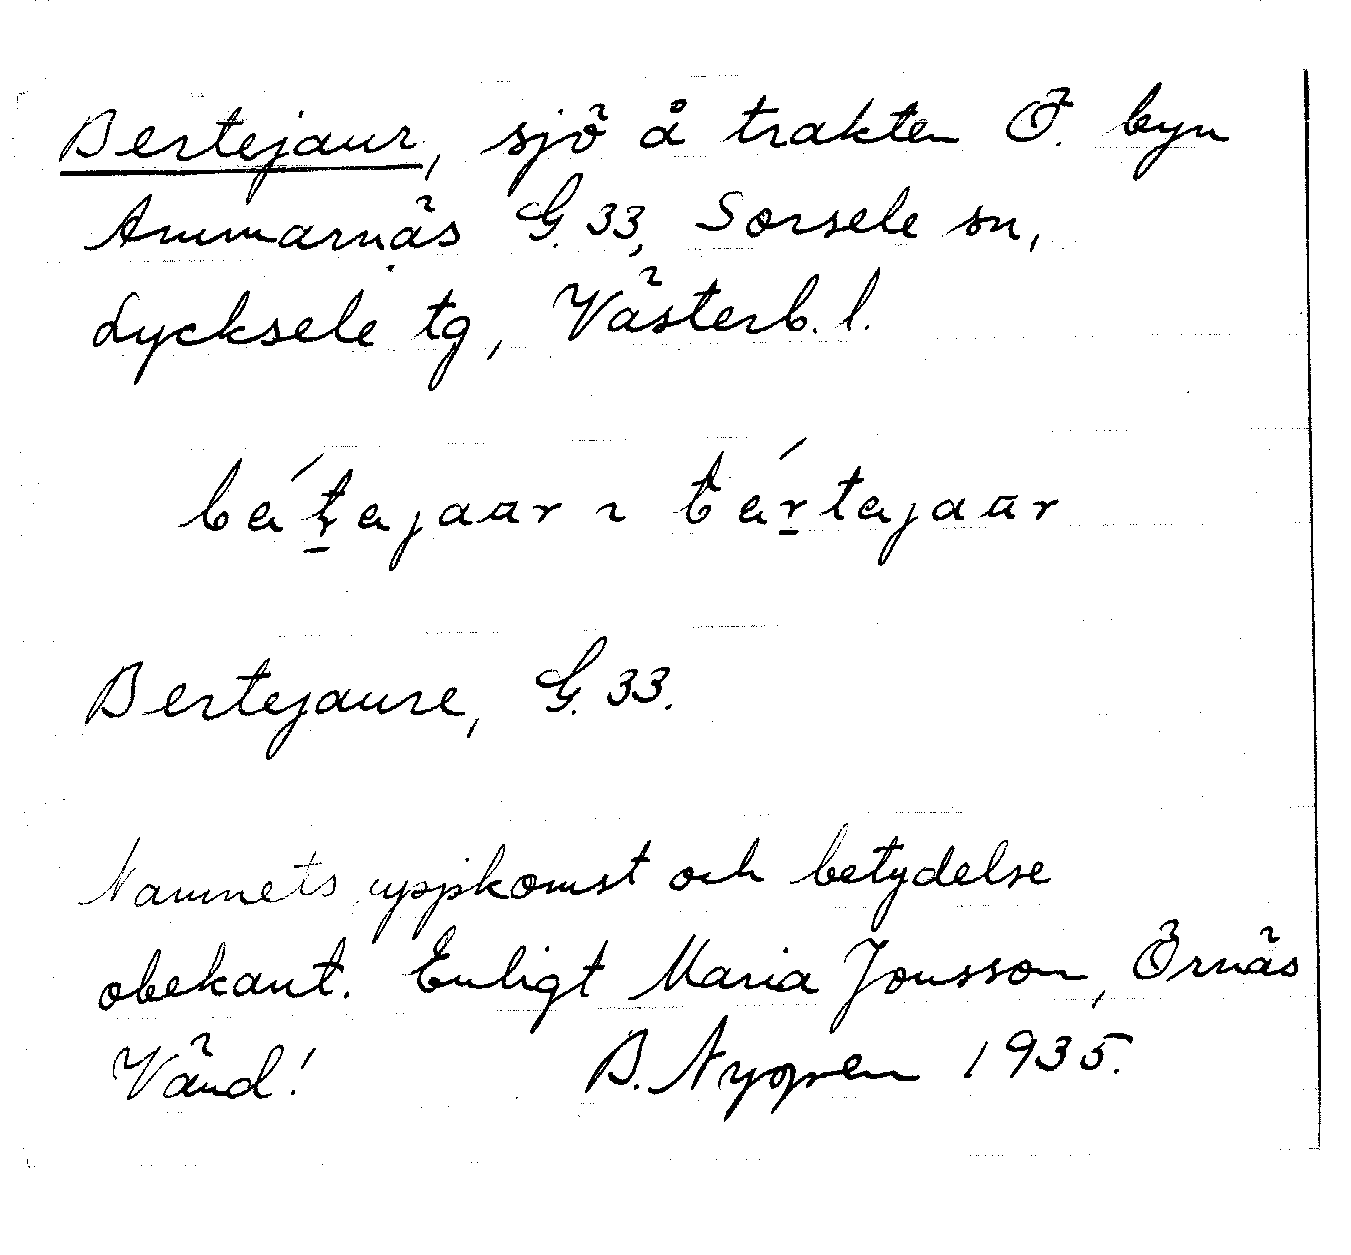 Bertejaur, sjö å trakten Ö. byn
Ammarnäs G. 33, Sorsele sn,
Lycksele tg, Västerb. l.
Bertejaure, G. 33.
Namnets uppkomst och betydelse
obekant. Enligt Maria Jonsson, Örnäs
Vänd! B. Nygren 1935.